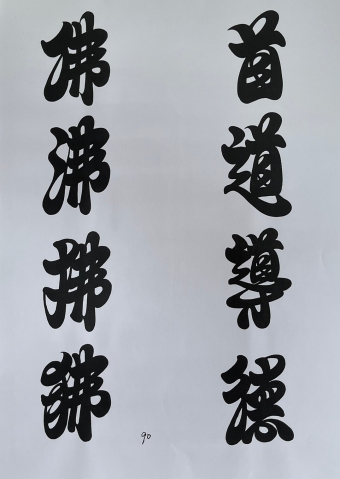 首道導德
佛沸拂狒
90